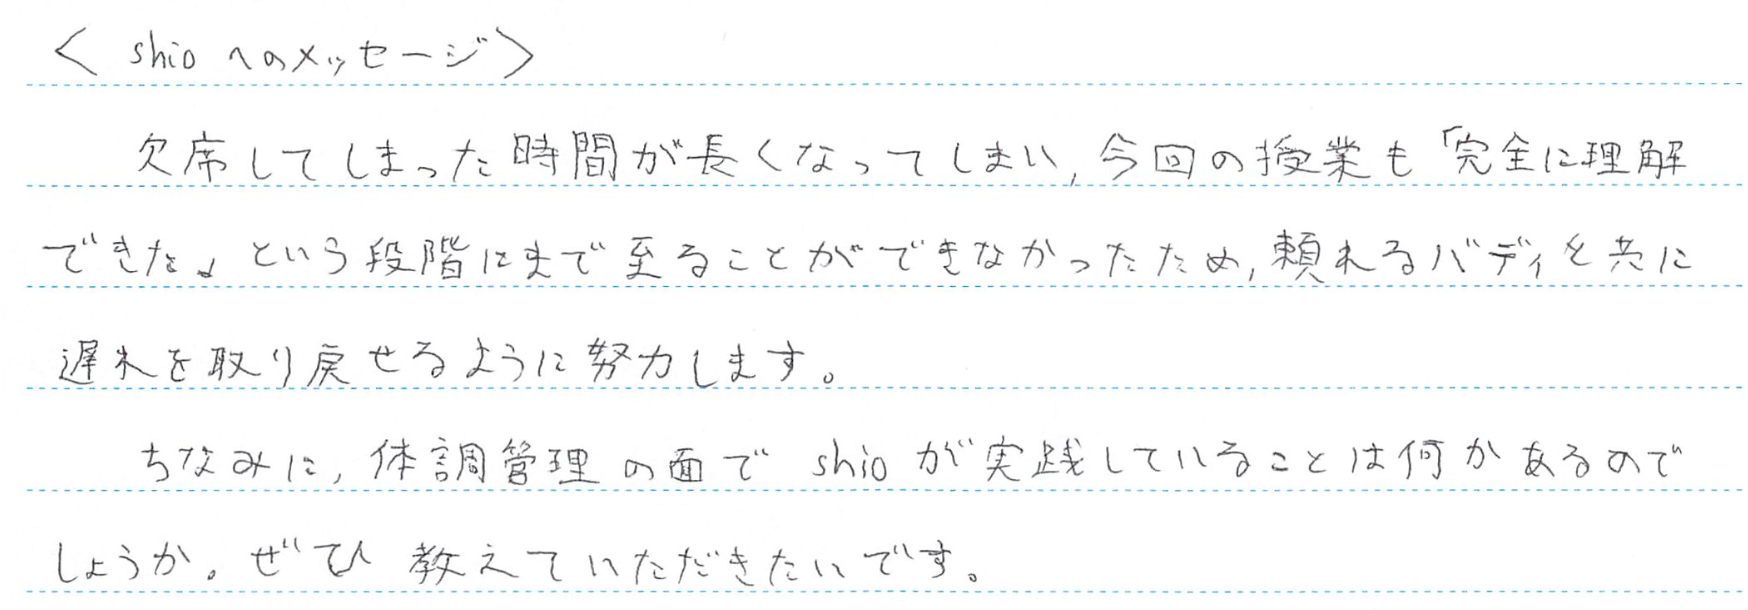 ＜shioへのメッセージ＞
欠席してしまった時間が長くなってしまい,今回の授業も「完全に理解
できた」という段階にまで至ることができなかったため,頼れるバディを共に
遅れを取り戻せるように努力します。
ちなみに,体調管理の面でshioが実践していることは何かあるので
しょうか。ぜひ教えていただきたいです。